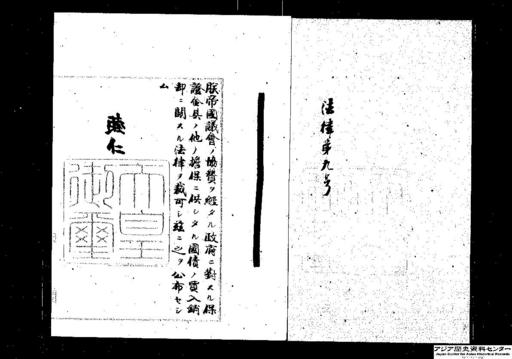 法律第九号
朕帝國議會ノ協賛ヲ經タル政府ニ對スル保
證金其ノ他ノ擔保ニ供シタル國債ノ買入銷
却ニ關スル法律ヲ裁可シ茲ニ之ヲ公布セシ
ム
睦仁
天皇
御璽
アジア歴史資料センター
Japan Center for Asian Historical Records